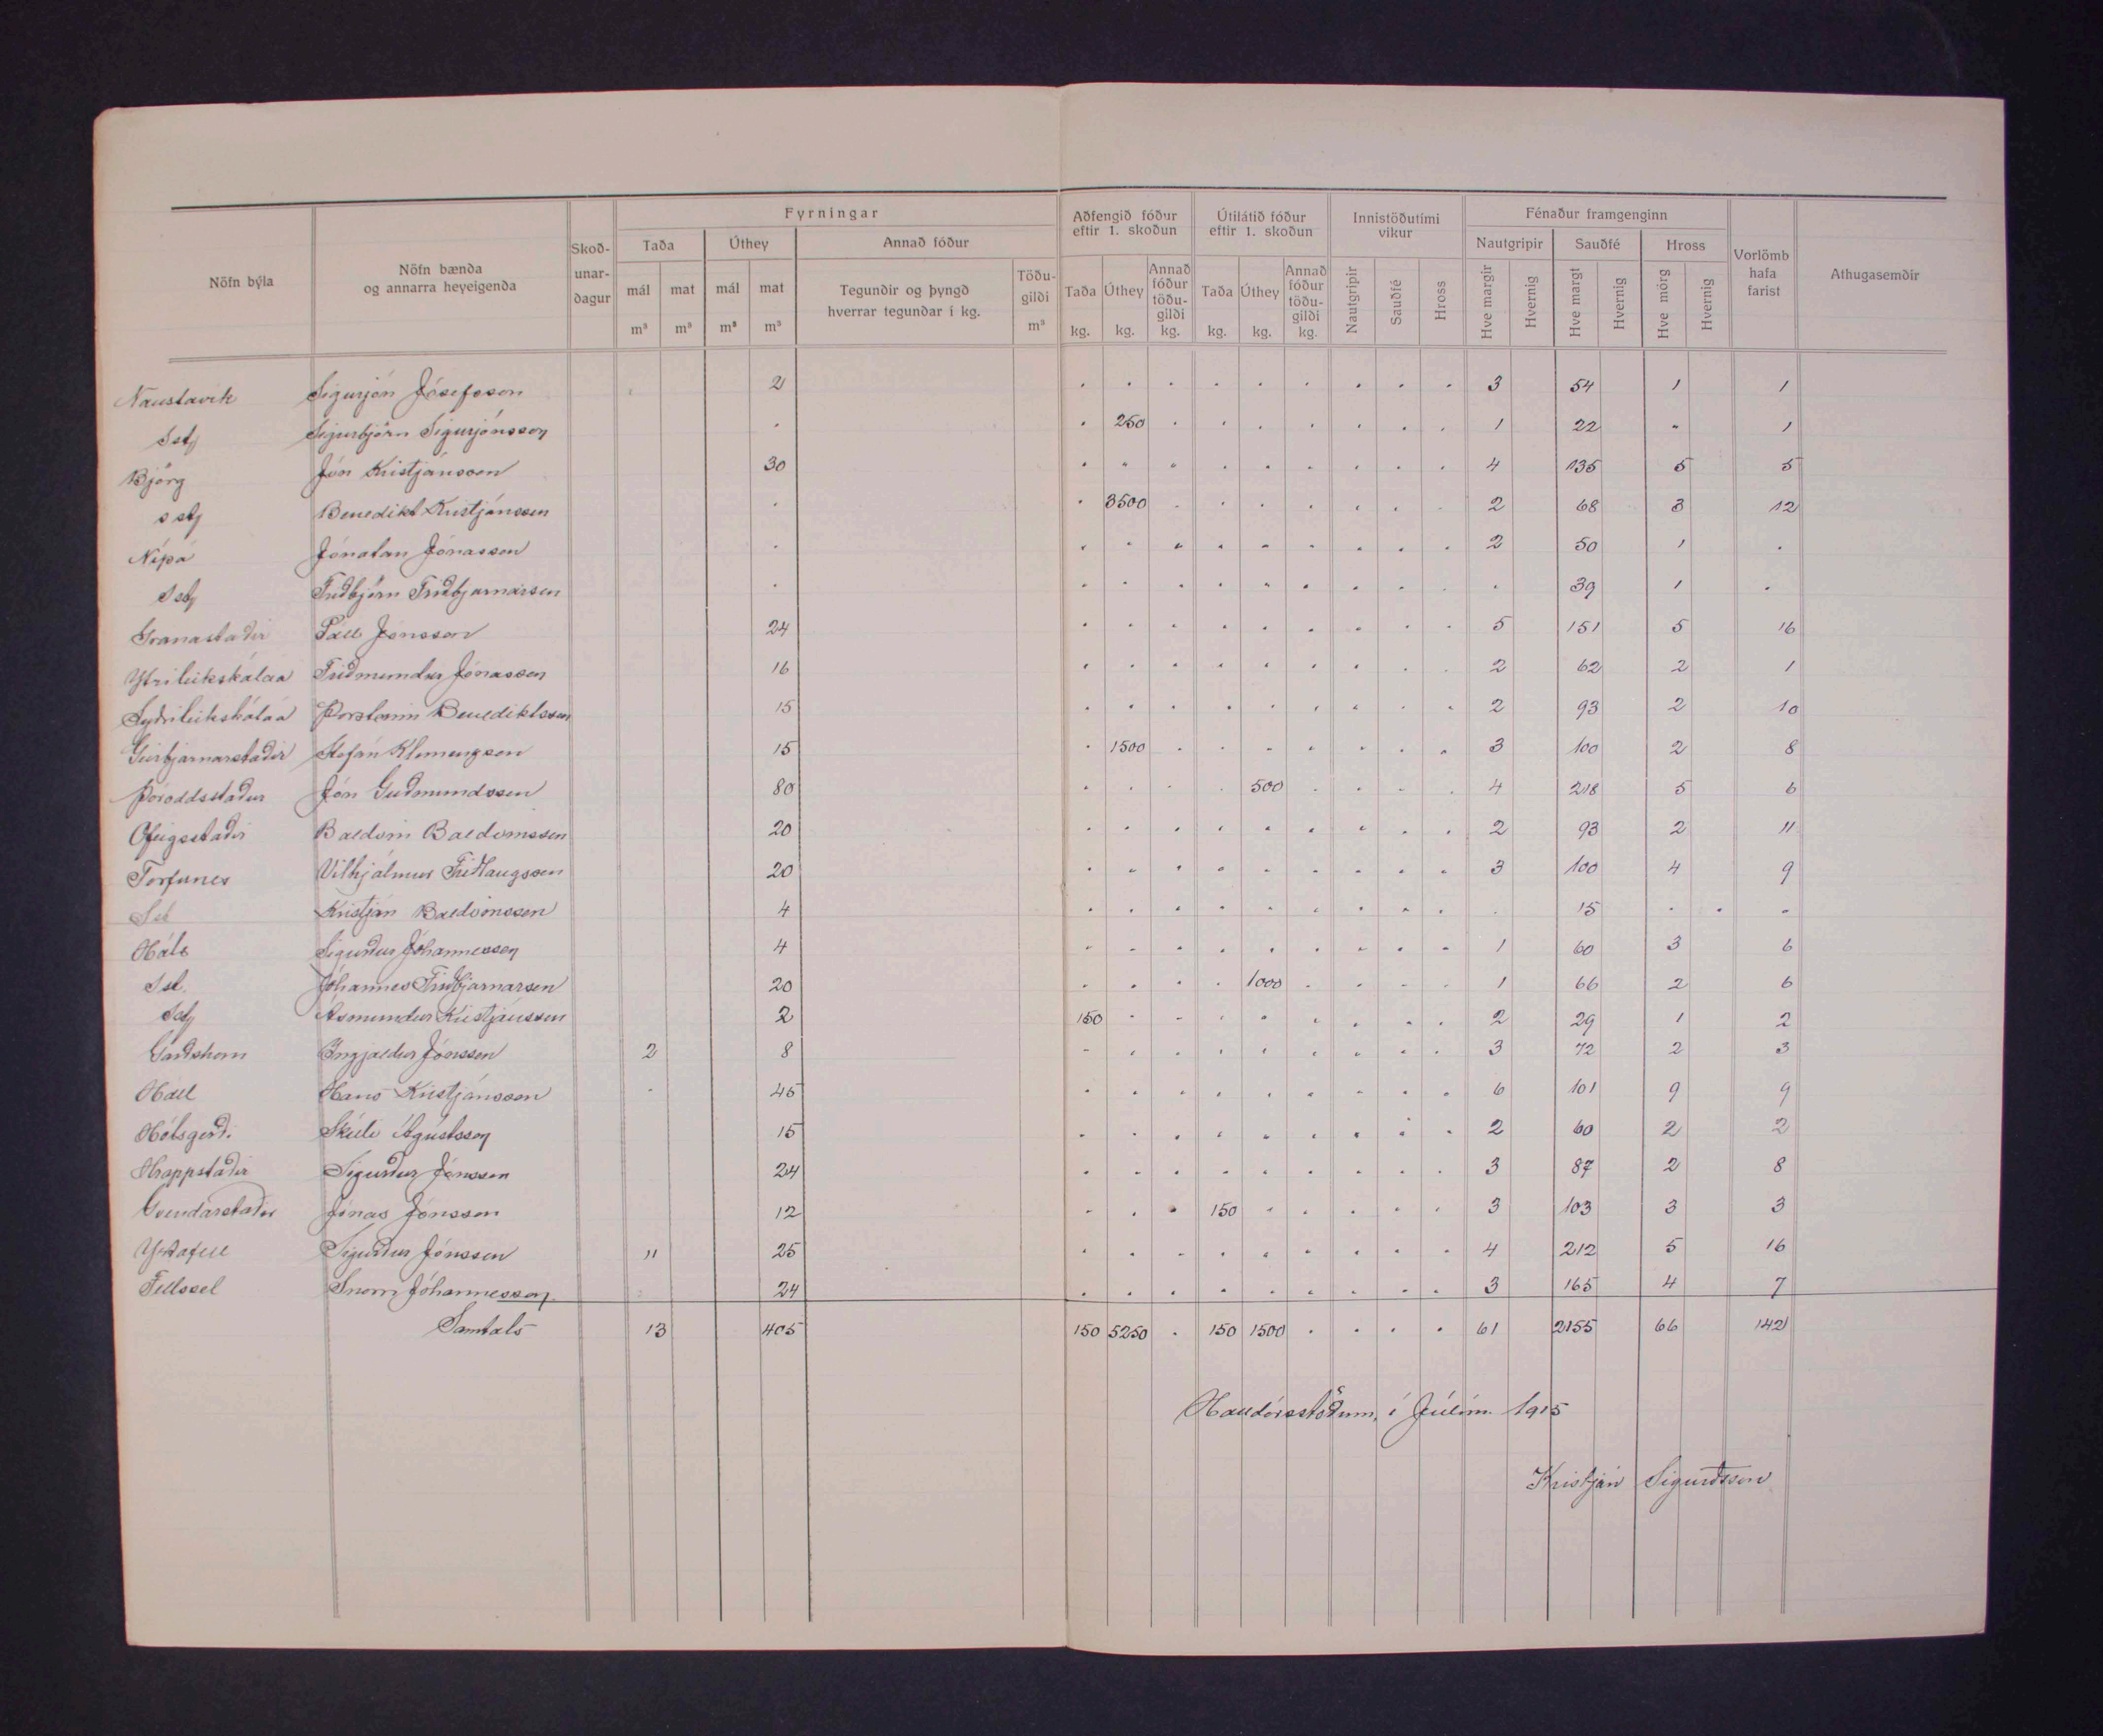 Fyrningar
Aðfengið fóður eftir 1. skoðun
Útilátið fóður eftir 1. skoðun
Innistöðutími vikur
Fénaður framgenginn
Nöfn býla
Nöfn bænda og annarra heyeigenda
Skoð-unar-dagur
Taða
Úthey
Annað fóður
Nautgripir
Sauðfé
Hross
Vorlömb hafa farist
Athugasemdir
mál m³
mat m³
mál m³
mat m³
Tegundir og þyngd hverrar tegundar í kg.
Töðu-gildi m³
Taða kg.
Úthey kg.
Annað fóður töðu-gildi kg.
Taða kg.
Úthey kg.
Annað fóður töðu-gildi kg.
Nautgripir
Sauðfé
Hross
Hve margir
Hvernig
Hve margt
Hvernig
Hve mörg
Hvernig
Naustavik Sigurjón Jósefsson 2 . . . . . . . . . 3 54 1 1
Sstj Sigurbjörn Sigurjónsson . . 250 . . . . . . . 1 22 " 1
Björg Jón Kristjánsson 30 . " " . . . . . . 4 135 5 5
sstj Benedikt Kristjánsson . . 3500 . . . . . . . 2 68 3 12
Nípá Jónatan Jónasson . . . . . . . . . . 2 50 1 .
Sstj Friðbjörn Friðbjarnarson . . . . . . . . . . . 39 1 .
Granastaðir Páll Jónsson 24 . . . . . . . . . 5 151 5 16
Ytrileikskálaá Friðmundur Jónasson 16 . . . . . . . . . 2 62 2 1
Syðrileikskálaá Þorsteinn Benediktsson 15 . . . . . . . . . 2 93 2 10
Geirbjarnarstaðir Stefán Klemengson 15 . 1500 . . . . . . . 3 100 2 8
Þóroddsstaður Jón Guðmundsson 80 . . . . 500 . . . . 4 218 5 6
Ofeigsstaðir Baldvin Baldvinsson 20 . . . . . . . . . 2 93 2 11
Torfunes Vilhjálmur Friðlaugsson 20 . . . . . . . . . 3 100 4 9
Sst Kristján Baldvinsson 4 . . . . . . . . . . 15 . . .
Háls Sigurður Jóhannesson 4 . . . . . . . . . 1 60 3 6
Sst. Jóhannes Friðbjarnarson 20 . . . . 1000 . . . . 1 66 2 6
Sstj Ásmundur Kristjánsson 2 150 . . . . . . . . 2 29 1 2
Garðshorn Ingjaldur Jónsson 2 8 - . . . . . . . . 3 72 2 3
Hall Hans Kristjánsson - 45 . . . . . . . . . 6 101 9 9
Hólsgerði Skúli Ágústsson 15 . . . . . . . . . 2 60 2 2
Hrappstaðir Sigurður Jónsson 24 . . . . . . . . . 3 87 2 8
Gvendarstaðir Jónas Jónsson 12 . . . 150 . . . . . 3 103 3 3
Ystafell Sigurður Jónsson 11 25 . . . . . . . . . 4 212 5 16
Fellssel Snorri Jóhannesson 24 . . . . . . . . . 3 165 4 7
Samtals 13 405 150 5250 . 150 1500 . . . . 61 2155 66 142
Halldórsstöðum, í Júlím. 1915
Kristján Sigurðsson